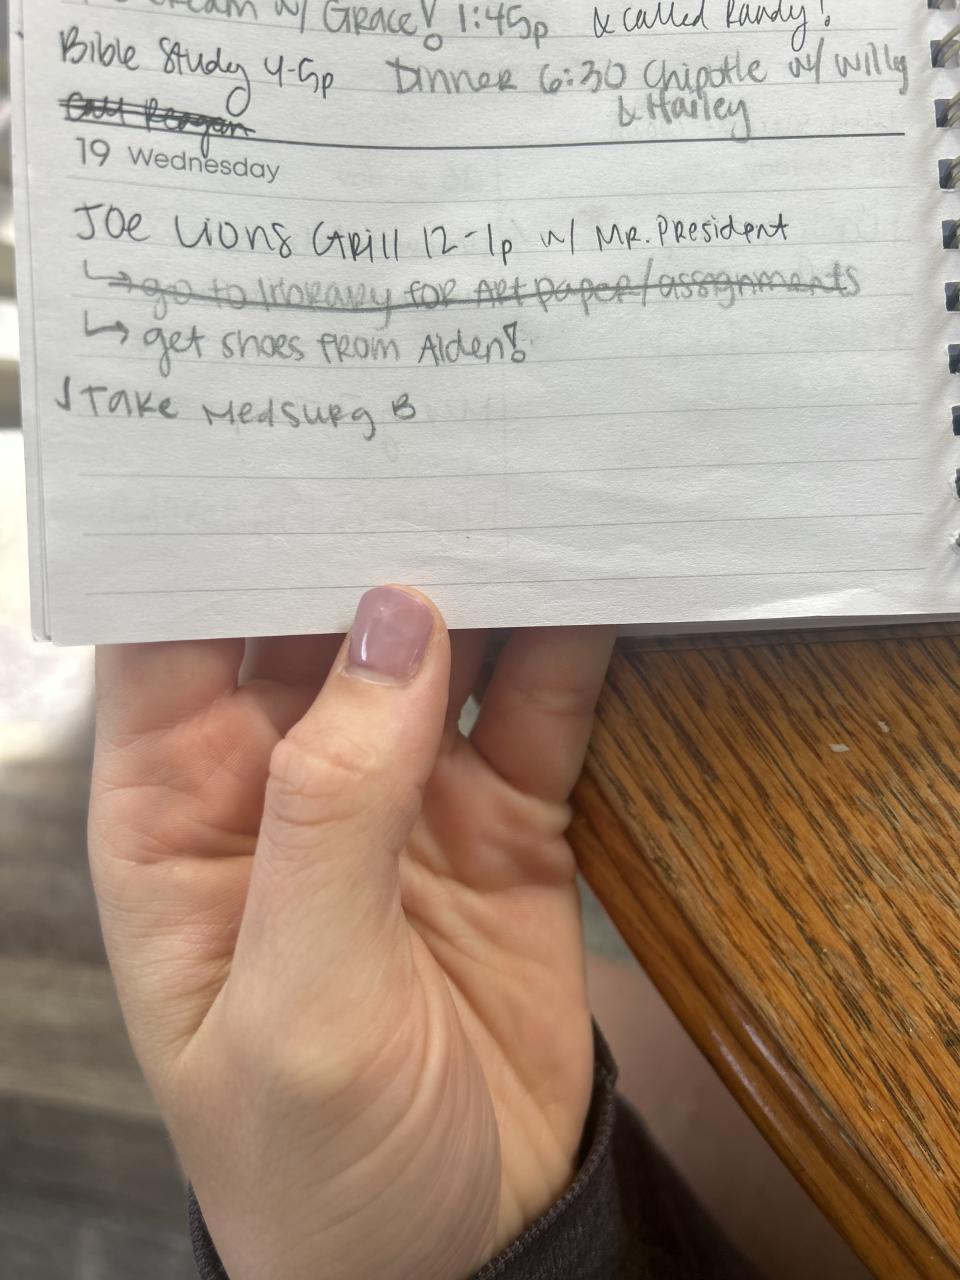 w/ Grace! 1:45p & called Randy!
Bible Study 4-5p Dinner 6:30 Chipotle w/ Willy
& Hailey
Call Reagan
19 Wednesday
Joe Lions Grill 12-1p w/ Mr. President
↳ go to library for Art paper/assignments
↳ get shoes from Alden!
√ Take Medsurg B